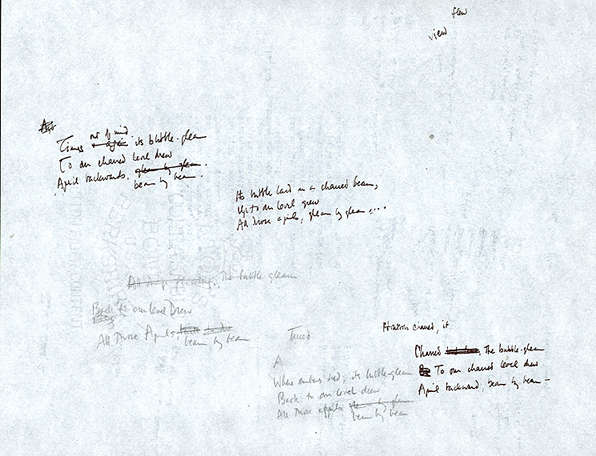 flow
view
out of mind
Times its bubble-gleam
To our charred level drew
April backwards, gleam by gleam.
beam by beam.
Its bubble laid on a charred beam,
Up to our level grew
All those aprils, gleam by gleam....
The bubble gleam
Back to our level Drew
All Those Aprils
beam by beam
Timed
A
When outers tied, its bubble-gleam
Back to our level drew
All those aprils gleam by gleam
beam by beam
Horizon charred, it
Charred, The bubble-gleam
To our charred level drew
April backward, beam by beam –